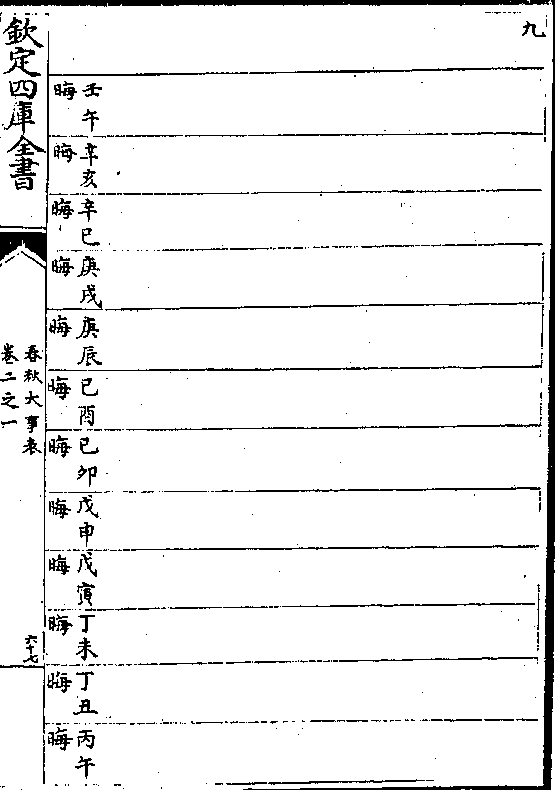 九
壬午晦
辛亥晦
辛巳晦
庚戌晦
庚辰晦
己酉晦
己卯晦
戊申晦
戊寅晦
丁未晦
丁丑晦
丙午晦
欽定四庫全書
春秋大事表
卷二之一
六十七